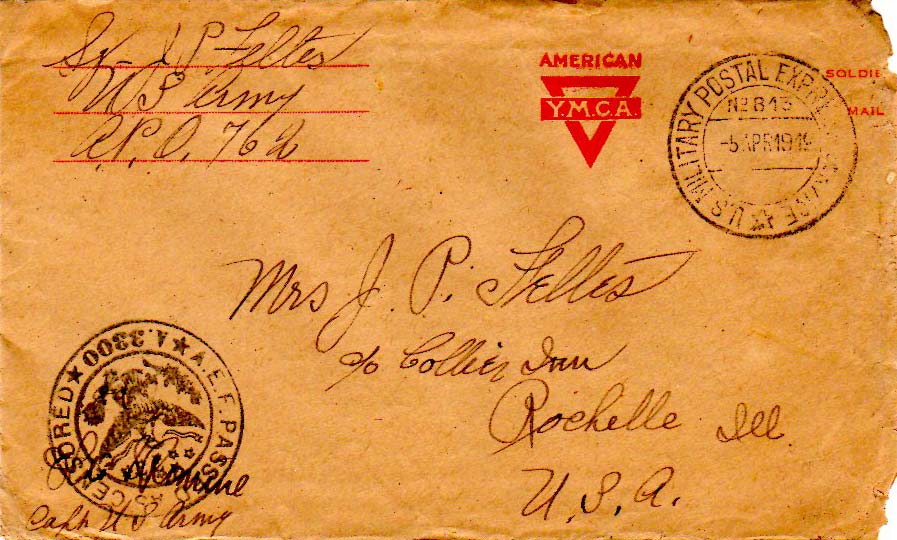 Sgt J P Felles
U S Army
A.P.O. 762
AMERICAN
Y.M.C.A.
SOLDIE
MAIL
U.S. MILITARY POSTAL EXPRE
No 813
APR 1919
Mrs J. P. Felles
c/o Collier Inn
Rochelle Ill.
U.S.A.
A.E.F. PASSED AS CENSORED
A.3300
Capt U S Army